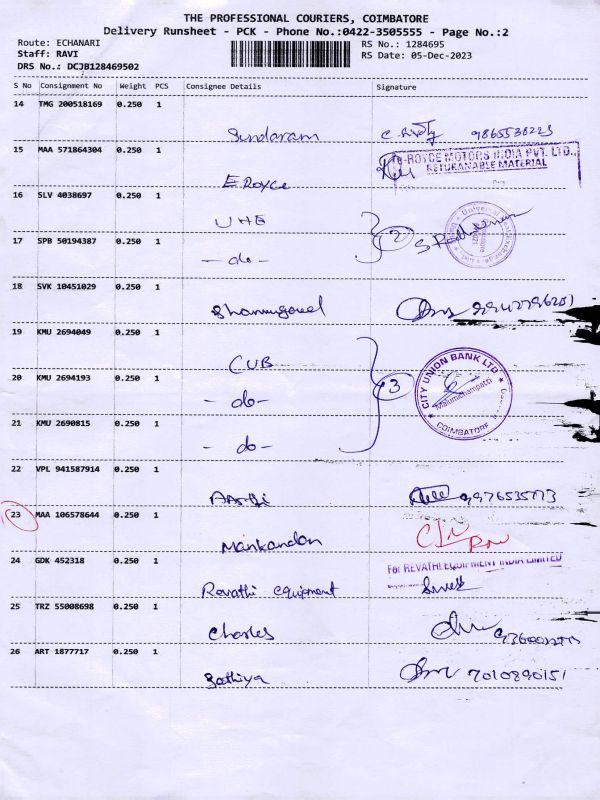 THE PROFESSIONAL COURIERS, COIMBATORE
Delivery Runsheet - PCK - Phone No.:0422-3505555 - Page No.:2
Route: ECHANARI
RS No.: 1284695
Staff: RAVI
RS Date: 05-Dec-2023
DRS No.: DCJB128469502
S No Consignment No Weight PCS Consignee Details Signature
14 TMG 200518169 0.250 1
Sundaram 9865536223
15 MAA 571864304 0.250 1
E-ROYCE MOTORS INDIA PVT. LTD.,
RETURANABLE MATERIAL
E Royce
16 SLV 4038697 0.250 1
UHE
17 SPB 50194387 0.250 1 2
- do -
18 SVK 10451029 0.250 1
Shanmugavel 9942796201
19 KMU 2694049 0.250 1
CUB
20 KMU 2694193 0.250 1 3
CITY UNION BANK LTD
Malumichampatti
COIMBATORE
- do -
21 KMU 2690815 0.250 1
- do -
22 VPL 941587914 0.250 1
Aarthi 9976535773
23 MAA 106578644 0.250 1
Manikandan
24 GDK 452318 0.250 1
For REVATHI EQUIPMENT INDIA LIMITED
Revathi equipment
25 TRZ 55008698 0.250 1
Charles
26 ART 1877717 0.250 1
Sathiya 7010890151